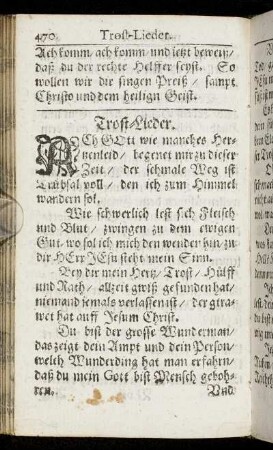 470 Trost-Lieder.
Ach komm / ach komm und jetzt beweiß /
daß du der rechte Helffer seyst. So
wollen wir dir singen Preiß / sampt
Christo und dem heilign Geist.
Trost-Lieder.
ACh GOtt wie manches Her-
tzenleid / begenet mir zu dieser
Zeit / der schmale Weg ist
Trübsal voll / den ich zum Himmel
wandern sol.
Wie schwerlich lest sich Fleisch
und Blut / zwingen zu dem ewigen
Gut / wo sol ich mich den wenden hin / zu
dir HErr JEsu steht mein Sinn.
Bey dir mein Hertz / Trost / Hülff
und Rath / allzeit gwiß gefunden hat /
niemand jemals verlassen ist / der gtra-
wet hat auff Jesum Christ.
Du bist der grosse Wunderman /
das zeigt dein Ampt und dein Person /
welch Wunderding hat man erfahrn /
daß du mein Gott bist Mensch geboh-
ren. Und